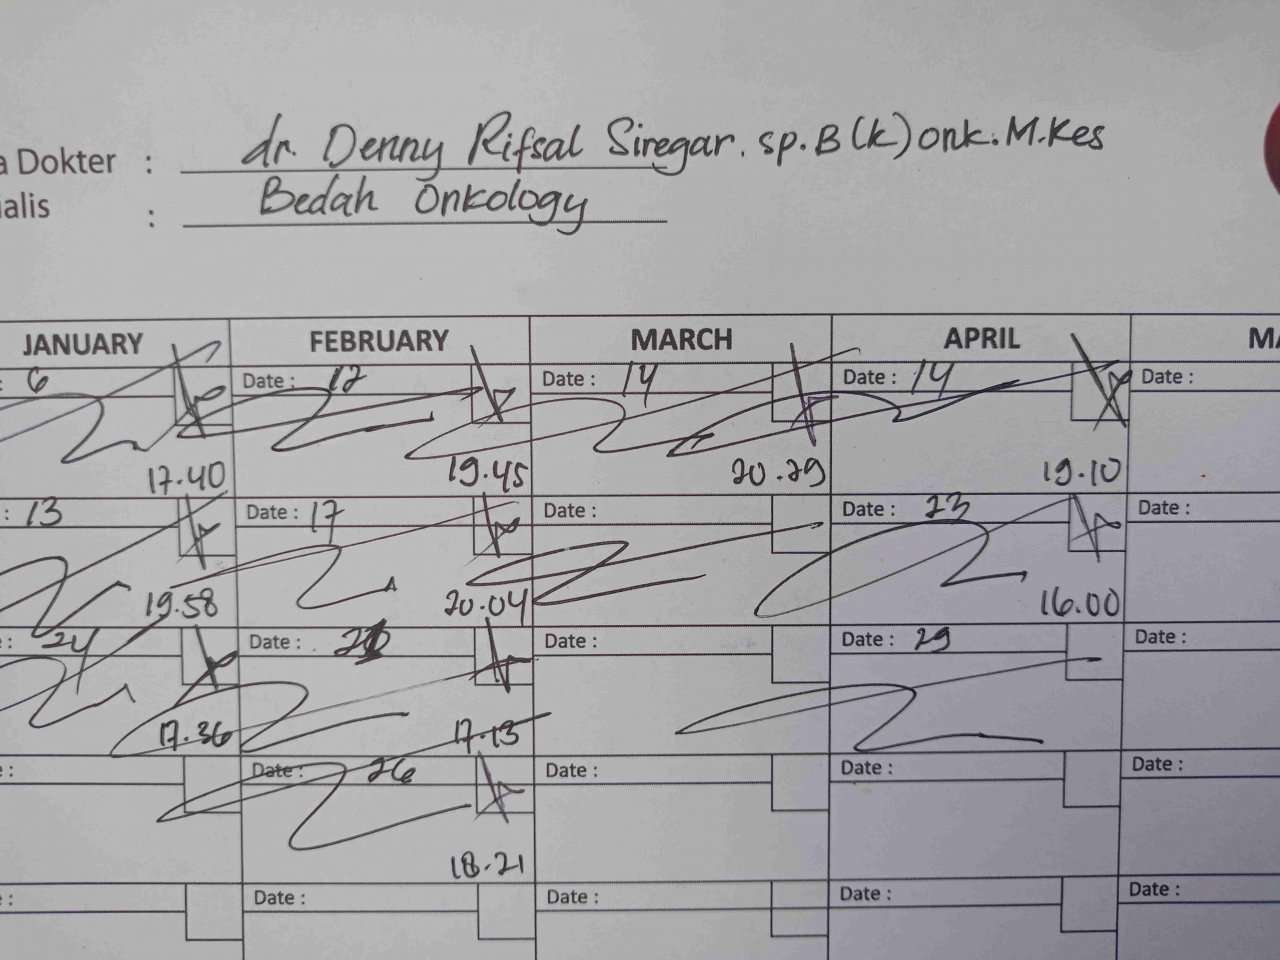 a Dokter : dr. Denny Rifsal Siregar. sp.B(k)onk.M.Kes
ialis : Bedah Onkology
JANUARY FEBRUARY MARCH APRIL MA
: 6 Date : 12 Date : 14 Date : 14 Date :
17.40 19.45 20.29 19.10
: 13 Date : 17 Date : Date : 23 Date :
19.58 20.04 16.00
: 24 Date : Date : Date : 29 Date :
17.36 17.13
: Date : 26 Date : Date : Date :
18.21
: Date : Date : Date : Date :